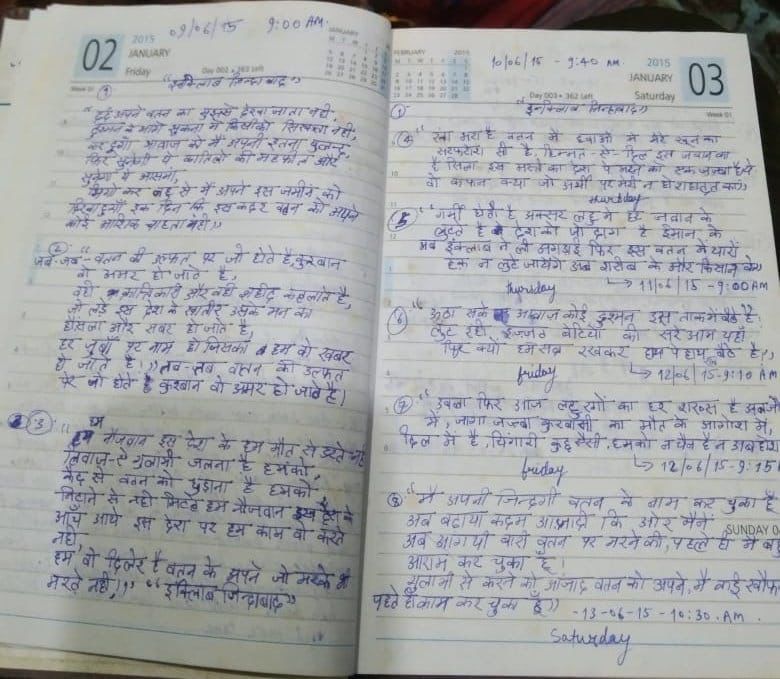 02
2015
JANUARY
Friday
Day 002 • 363 Left
Week 01
09/06/15 9:00 AM.
JANUARY
① "इन्कलाब जिन्दाबाद"
"दर्द अपने वतन का मुझसे देखा जाता नहीं,
दुश्मन के आगे झुकना में किसीको सिखाता नहीं,
कर दूंगा आवाज को में अपनी इतना बुलन्द,
फिर सुनेगी ये कातिलों की महफील और
सुनेगा ये आसमां,
सियों कर लहू से में अपने इस जमीन को
दिखाहुगाँ एक दिन कि इस कदर वतन को अपने
कोई आशिक चाहता नहीं।"
② "
जब-जब वतन की उल्फत पर जो होते है, कुरबान
वो अमर हो जाते है,
वही क्रान्तिकारी और वही शहीद कहलाते है,
जो लड़े इस देश के खातीर उसके मन का
होसला और सबर हो जाते है,
हर जुबाँ पर नाम हो जिसका हम वो खबर
हो जाते है।" तब-तब वतन की उल्फत
पर जो होते है कुरबान वो अमर हो जाते है।
③ "
हम नौजवान इस देश के हम मौत से डरते नहीं
लिवाज-ऐ गुलामी जलना है हमको,
कैद से वतन को छुड़ाना है हमको,
मिटाने से नही मिटते हम नौजवान इस देश के
आँच आये इस देश पर हम काम वो करते
नही,
हम वो दिलेर है वतन के अपने जो मरके भी
मरते नही।" "इंक्लिाब जिन्दाबाद"
FEBRUARY 2015
10/06/15 - 9:40 AM.
2015
JANUARY
Saturday
03
Day 003 • 362 Left
Week 01
① "इनकिलाब जिन्दाबाद"
④ "रंग भरा है वतन में हवाओं में मेरे खून का
सरफरोशी सी है, हिम्मत-ऐ-दिल इस जवान का
है सिला इस मस्ती का देश पे मरने का एक जज्बा है ये
वो कफन क्या जो अभी पर मरा न हो
thursday
⑤ "गर्मी होती है अक्सर लहू में हर जवान के
लुटते है देश को जो दाग है ईमान के
अब इंकलाब ने ली अगड़ाई फिर इस वतन में यारों
हक न लुटे जायेंगे अब गरीब के और किसान के"
thursday ↳ 11/06/15 - 9:00 AM
⑥ "उठा सके आवाज कोई दुश्मन इस ताक में बैठे है,
लुट रही इज्जत बेटियों की सरे आम यहाँ
फिर क्यों हम सब रखकर हाथ पे हाथ बैठे है।"
friday ↳ 12/06/15 - 9:10 AM
⑦ "उबला फिर आज लहू रगों का हर शख्स है
में, जागा जज्बा कुरबानी का मौत के आगोश में,
दिल में है, चिंगारी कुछ ऐसी, हमको न चैन है न अब होश
friday ↳ 12/06/15 - 9:15
⑧ "मै अपनी जिन्दगी वतन के नाम कर चुका हूँ
अब बढाया कदम आजादी कि ओर मैने
SUNDAY 0
अब आगयी बारी वतन पर मरने की, पहले ही मे
आराम कर चुका हूँ।
गुलामी से करने को आजाद वतन को अपने, मै कई खौफ
पहले ही काम कर चुका हूँ"
- 13-06-15 - 10:30. AM.
Saturday